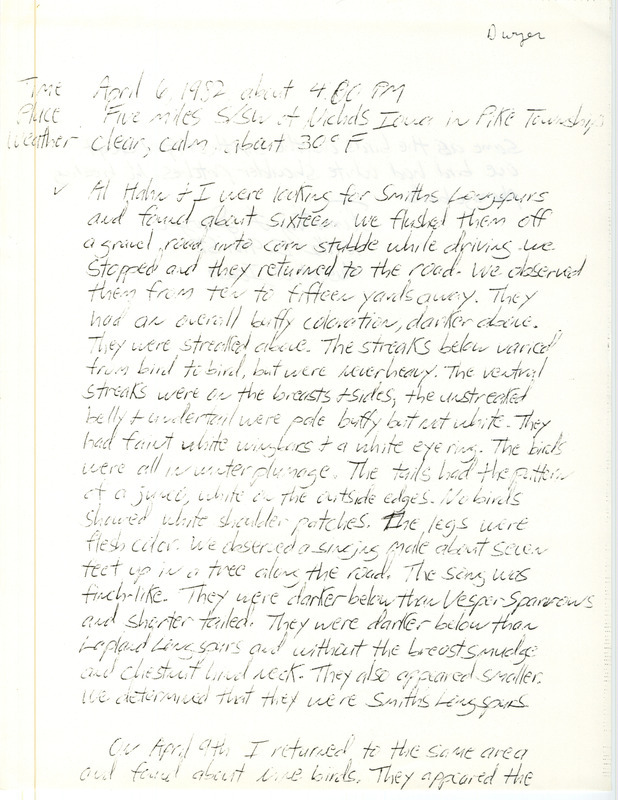 Dwyer
Time April 6, 1982 about 4:00 PM
Place Five miles S/SW of Nichols Iowa in Pike Township
Weather clear, calm, about 30° F
✓ Al Hahn + I were looking for Smiths Longspurs
and found about sixteen. We flushed them off
a gravel road, into corn stubble while driving. We
stopped and they returned to the road. We observed
them from ten to fifteen yards away. They
had an overall buffy coloration, darker above.
They were streaked above. The streaks below varied
from bird to bird, but were never heavy. The ventral
streaks were on the breasts + sides; the unstreaked
belly + undertail were pale buffy but not white. They
had faint white wingbars + a white eye ring. The birds
were all in winter plumage. The tails had the pattern
of a junco, white on the outside edges. No birds
showed white shoulder patches. The legs were
flesh color. We observed a singing male about seven
feet up in a tree along the road. The song was
finch-like. They were darker below than Vesper Sparrows
and shorter tailed. They were darker below than
Lapland Longspurs and without the breast smudge
and chestnut hind neck. They also appeared smaller.
We determined that they were Smiths Longspurs
On April 9th I returned to the same area
and found about nine birds. They appeared the